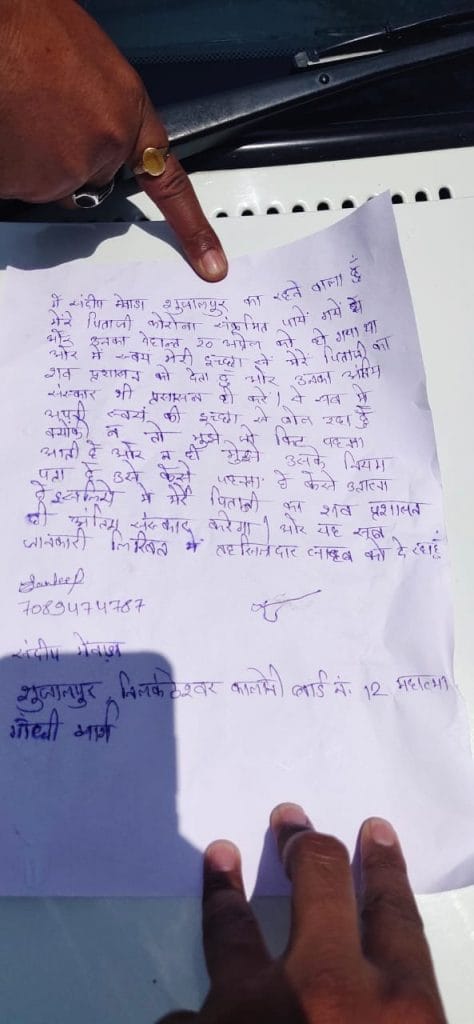 में संदीप मेवाडा शुजालपुर का रहने वाला हूँ
मेरे पिताजी कोरोना संक्रमित पायें गयें थे
और उनका देहान्त 20 अप्रेल को हो गया था
और में स्वय मेरी इच्छा सें मेरे पिताजी का
शव प्रशासन को देता हु और उनका अंतिम
संस्कार भी प्रशासन ही करे। ये सब में
अपनी स्वयं की इच्छा से बोल रहा हूँ
क्योंकी न तो मुझे पी पि किट पहनना
आती हे और न ही मुझे उसके नियम
पता हे उसे केसे पहनना हे केसे उतारना
हे इसलिये मे मेरे पिताजी का शव प्रशासन
ही अंतिम संस्कार करेगा। और यह सब
जानकारी लिखित में तहसिलदार साहब को दे रहा हूं
Sandeep
7089474787
संदीप मेवाडा
शुजालपुर, निलकंठेश्वर कालोनी वार्ड नं. 12 महात्मा
गाँधी मार्ग